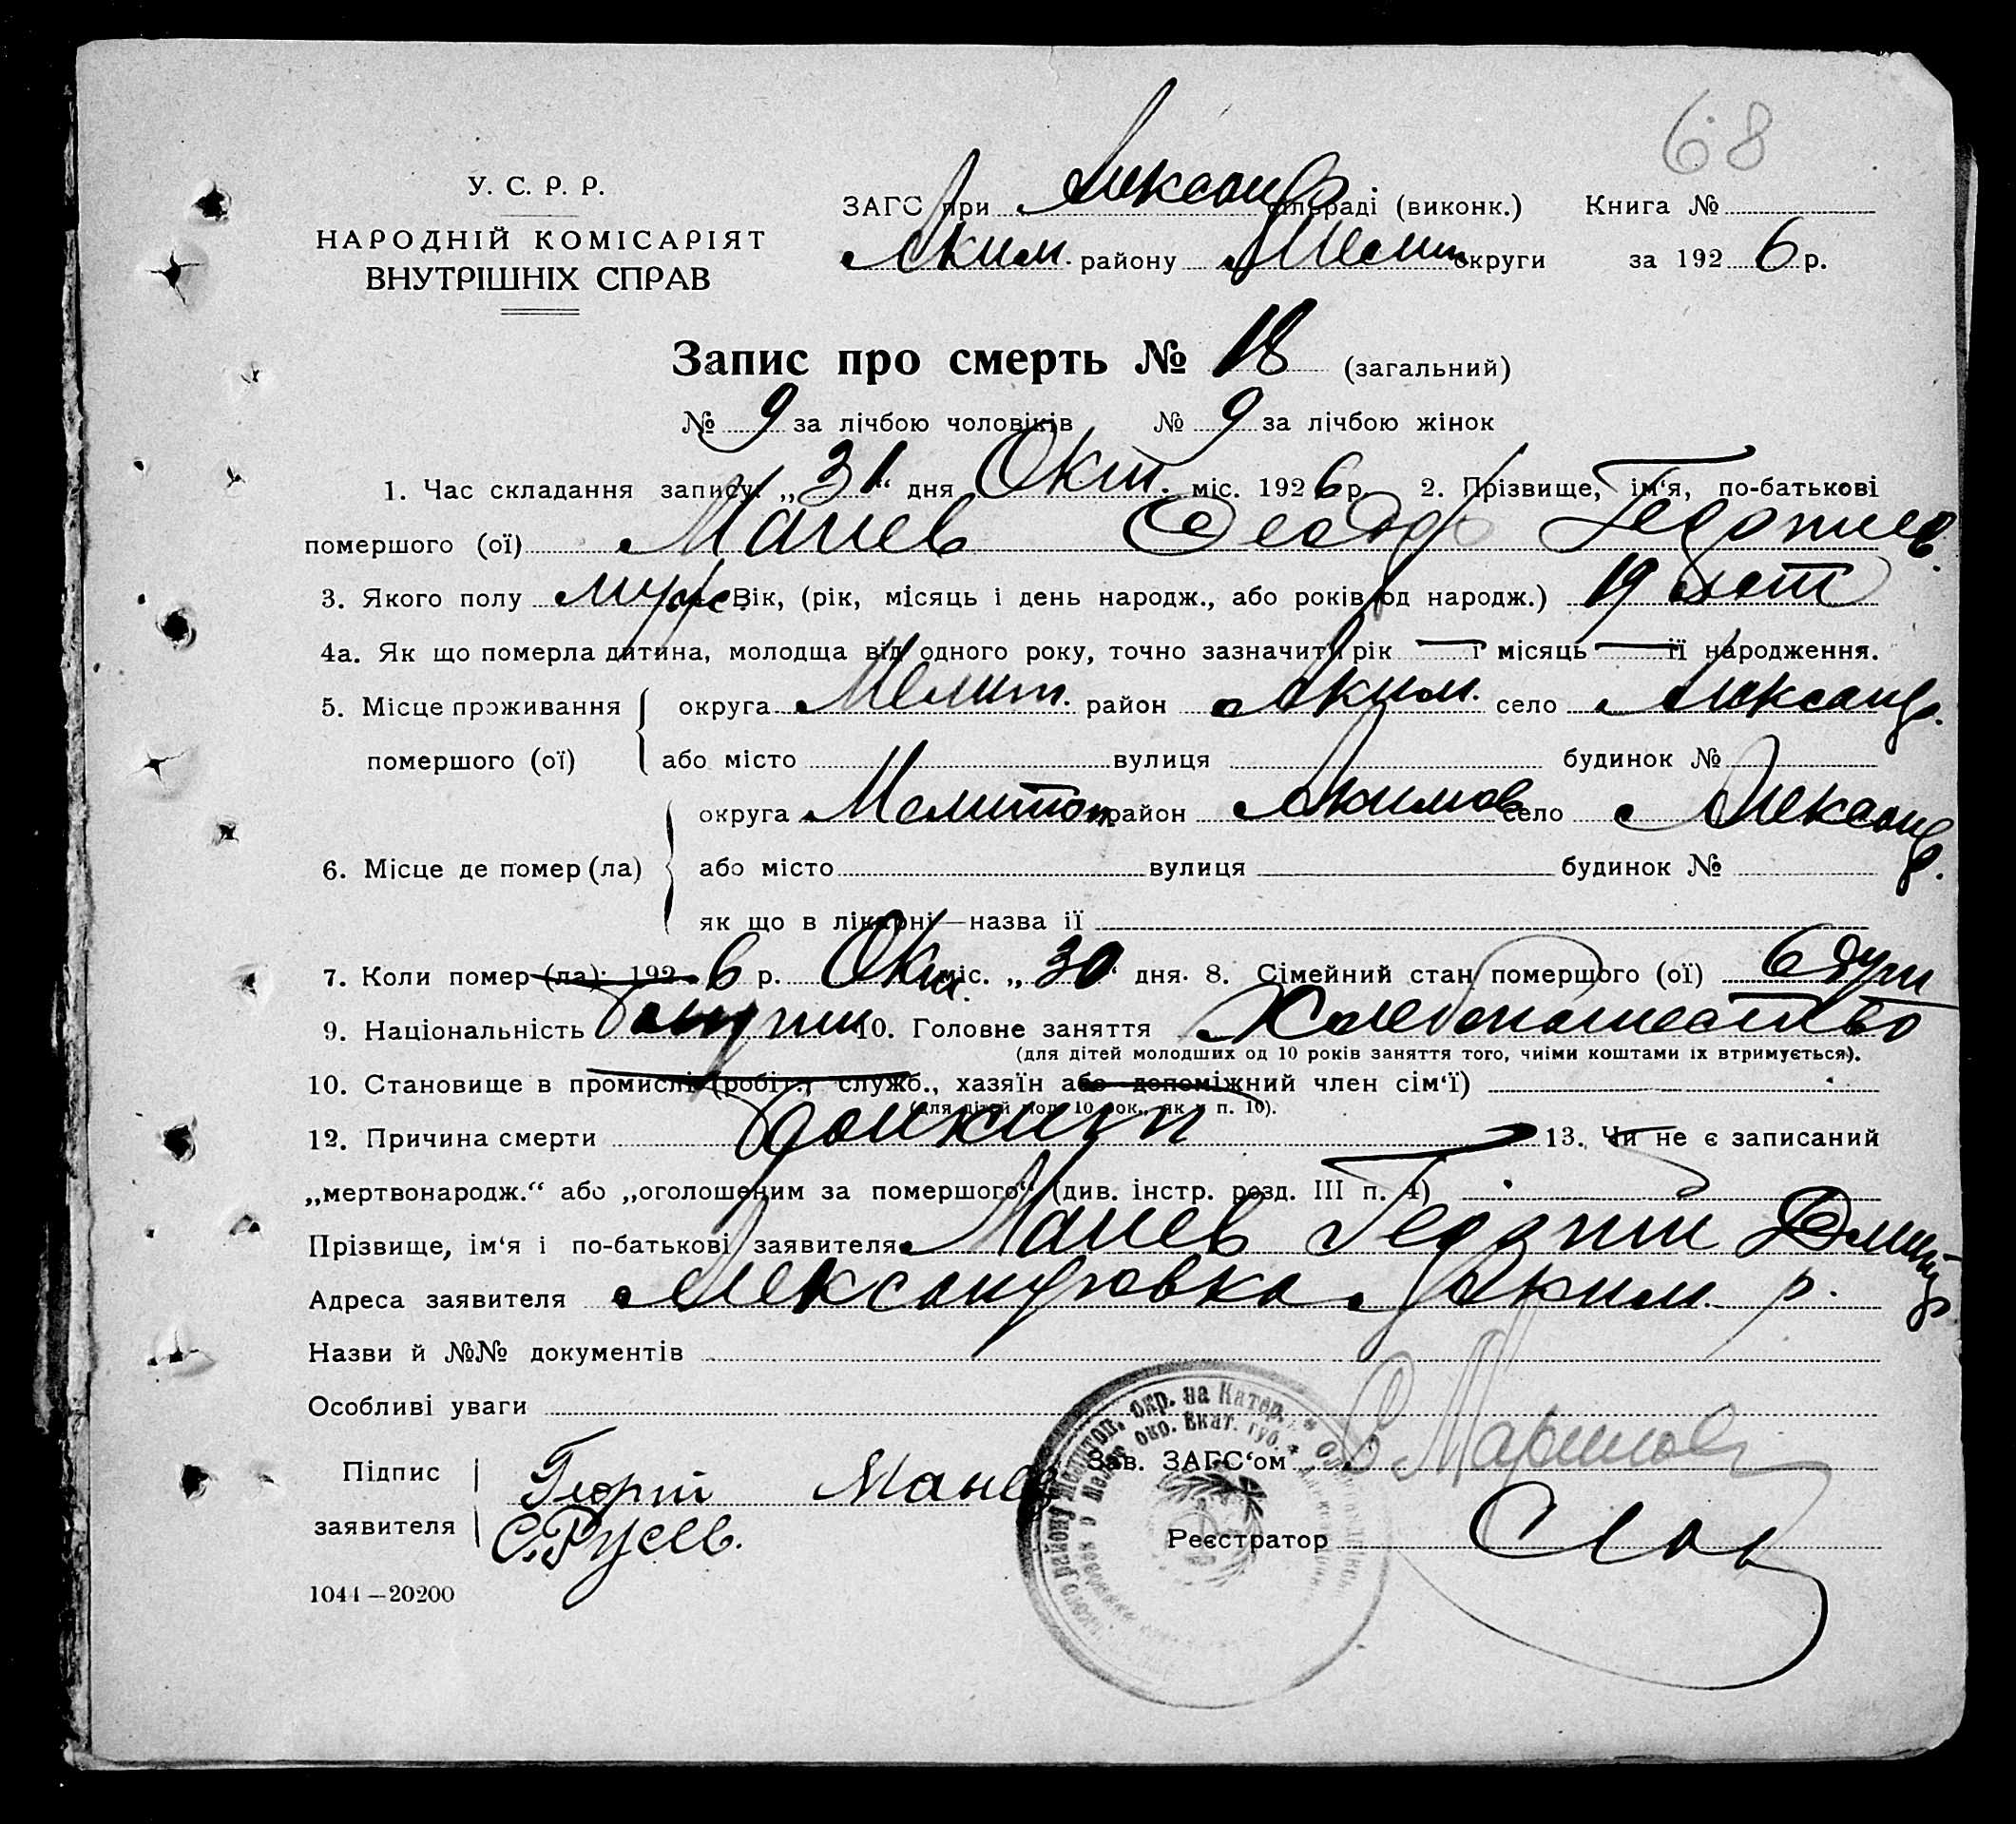 68
У. С. Р. Р.
НАРОДНІЙ КОМІСАРІЯТ
ВНУТРІШНІХ СПРАВ
ЗАГС при Александ сільраді (виконк.) Книга №
Аким. району Мелит округи за 1926 р.
Запис про смерть № 18 (загальний)
№ 9 за лічбою чоловіків № 9 за лічбою жінок
1. Час складання запису: „31“ дня Окт. міс. 1926 р. 2. Прізвище, ім‘я, по-батькові
помершого (ої) Манев Феодор Георгиев.
3. Якого полу мужс. Вік, (рік, місяць і день народж., або років од народж.) 19 лет
4а. Як що померла дитина, молодща від одного року, точно зазначити рік — і місяць — її народження.
5. Місце проживання округа Мелит. район Аким. село Александр.
помершого (ої) або місто вулиця будинок №
округа Мелитоп. район Акимов село Александр.
6. Місце де помер (ла) або місто вулиця будинок №
як що в лікарні—назва її
7. Коли помер (ла): 1926 р. Окт. міс. „30“ дня. 8. Сімейний стан померщого (ої) 6 душ
9. Національність 10. Головне заняття Хлебопашество
(для дітей молодших од 10 років заняття того, чиїми коштами їх втримується).
10. Становище в промислі (робіт., служб., хазяїн або допоміжний член сім‘ї)
(для дітей мол. 10 рок., як у п. 10).
12. Причина смерти 13. Чи не є записаний
„мертвонародж.“ або „оголошеним за помершого“ (див. інстр. розд. III п. 4)
Прізвище, ім‘я і по-батькові заявителя Манев Георгий Дмит
Адреса заявителя Александровка Аким. р.
Назви й №№ документів
Особливі уваги
Підпис Георги Манев Зав. ЗАГС‘ом
заявителя С. Русев. Реєстратор
1044—20200